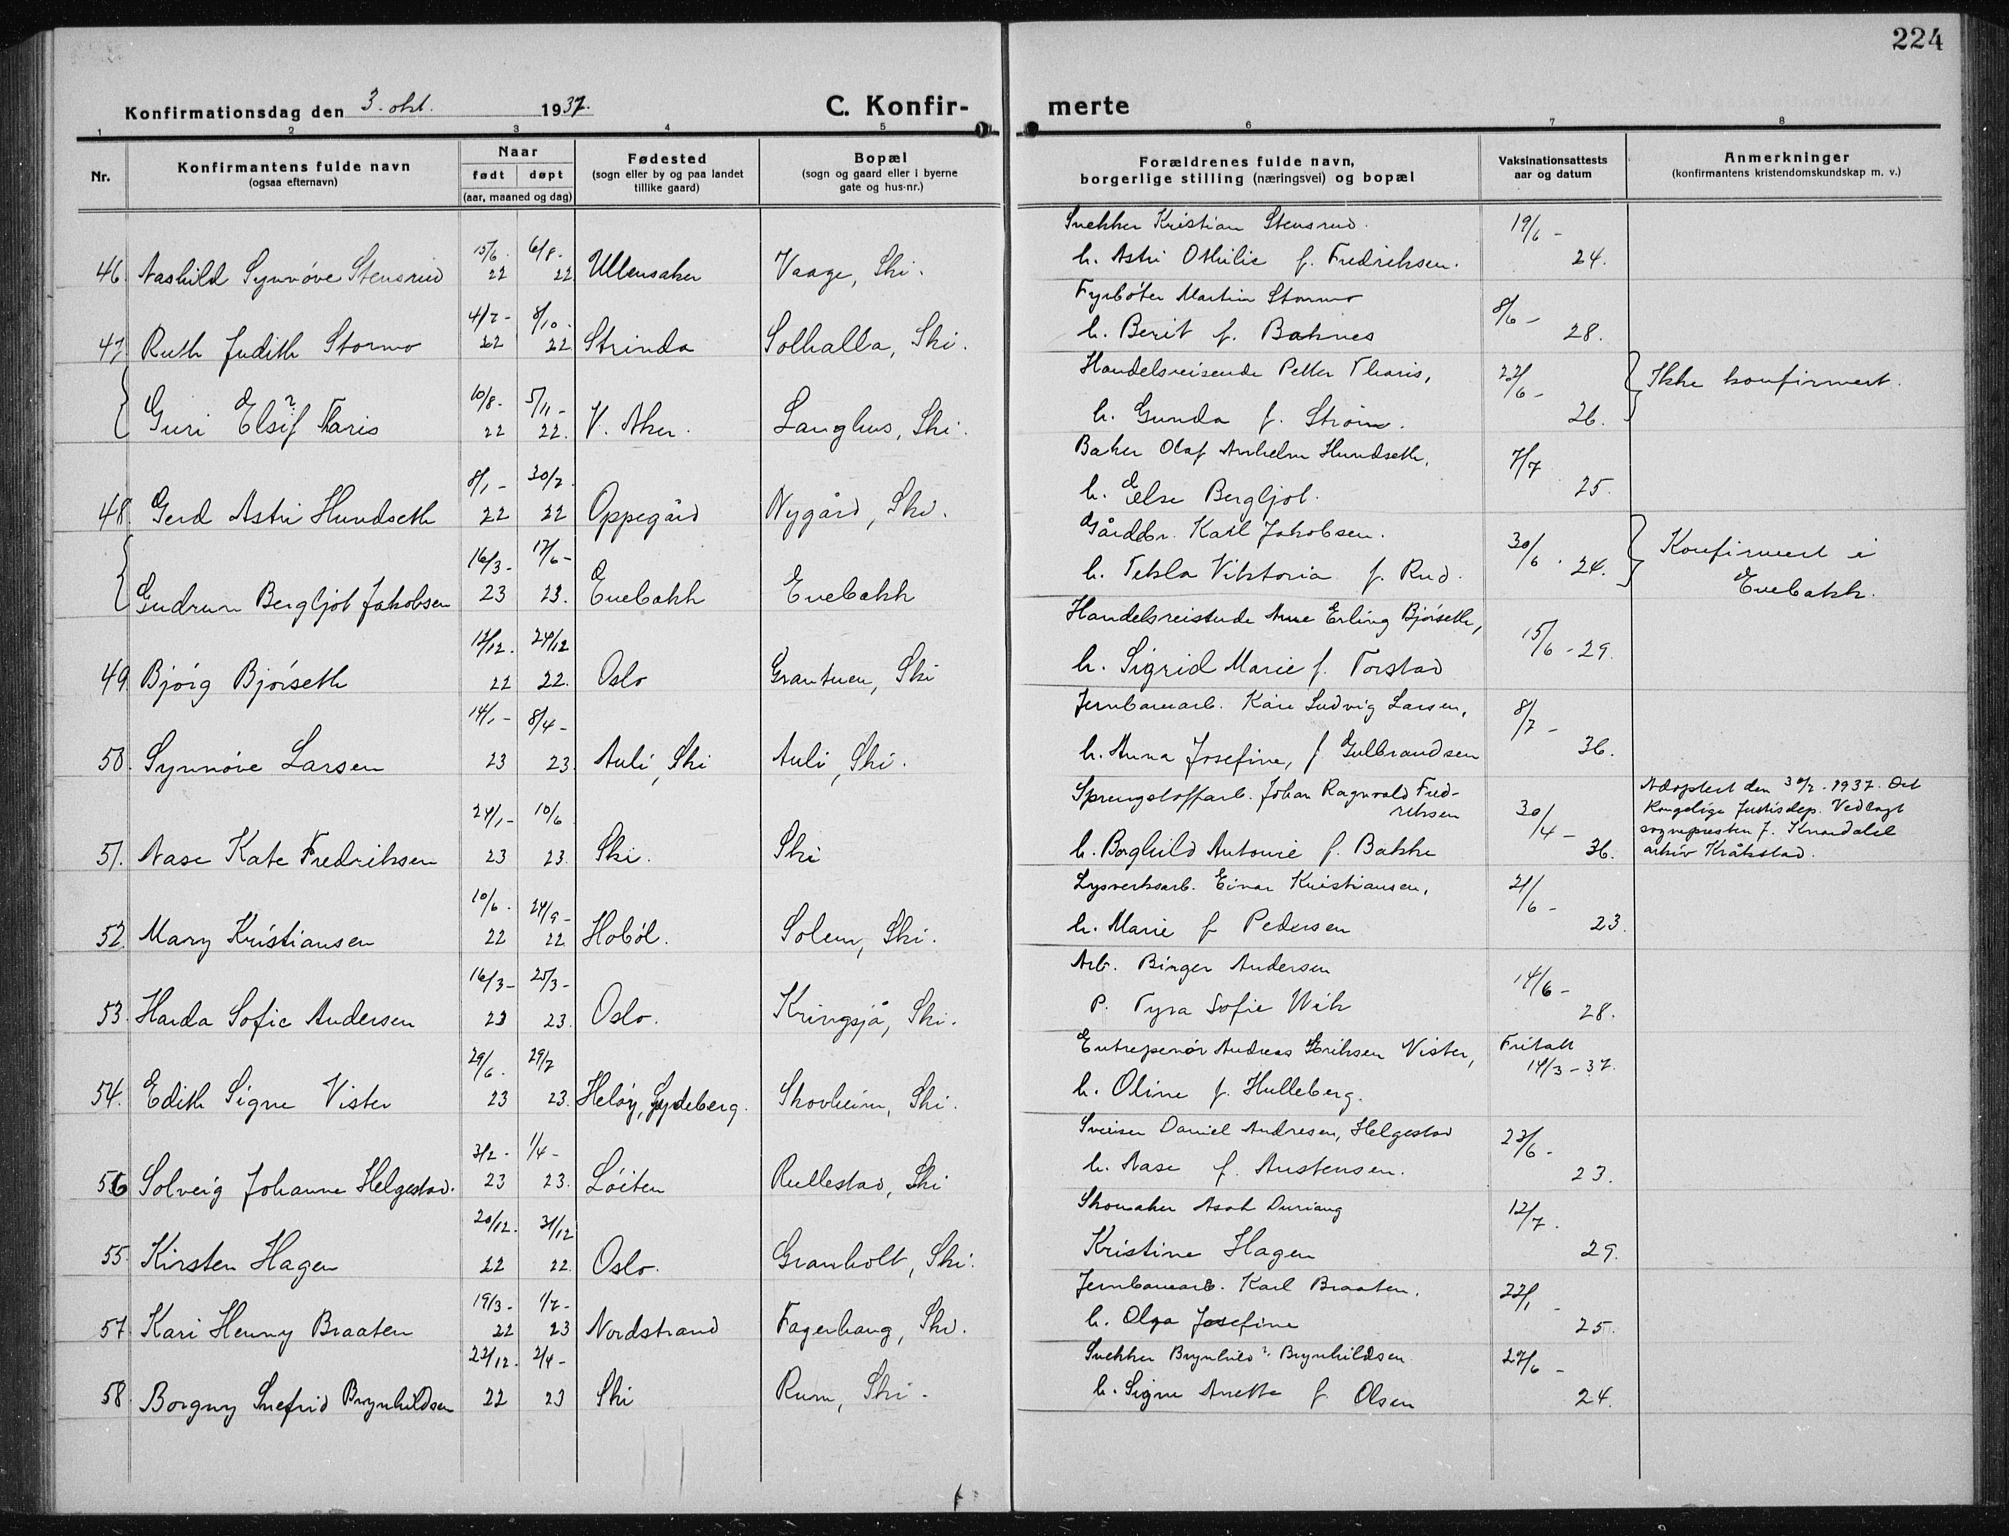 224
Konfirmationsdag den 3. okt. 1937. C. Konfir- merte
1 2 3 4 5 6 7 8
Nr. Konfirmantens fulde navn (ogsaa efternavn)
Naar født døpt (aar, maaned og dag)
Fødested (sogn eller by og paa landet tillike gaard)
Bopæl (sogn og gaard eller i byerne gate og hus-nr.)
Forældrenes fulde navn, borgerlige stilling (næringsvei) og bopæl
Vaksinationsattests aar og datum
Anmerkninger (konfirmantens kristendomskundskap m. v.)
46. Aashild Synnøve Stensrud 15/6. 22 6/8. 22 Ullensaker Vaage, Ski. Snekker Kristian Stensrud. h. Astri Othilie f. Fredriksen. 19/6 - 24.
47. Ruth Judith Stormo 4/7 - 22 8/10. 22 Strinda Solhalla, Ski. Fyrbøter Martin Stormo h. Berit f. Baknes 8/6 - 28.
Guri Elsif ? Tharis 10/8 - 22 5/11 - 22. V. Aker. Langhus, Ski. Handelsreisende Petter Tharis, h. Gunda f. Strøm. 22/6 - 26. Ikke konfirmert.
48. Gerd Astri Hundseth 8/1 - 22 30/7. 22 Oppegård Nygård, Ski. Baker Olaf Anhelm Hundseth, h. Else Bergljot. 7/7 25.
Gudrun Bergljot Jakobsen 16/3 - 23 17/6 - 23. Enebakk Enebakk Gårdbr. Karl Jakobsen. h. Tekla Viktoria f. Rud. 30/6. 24. Konfirmert i Enebakk.
49. Bjørg Bjørseth 12/12. 22 24/12 22. Oslo Grantuen, Ski Handelsreisende Arne Erling Bjørseth, h. Sigrid Marie f. Torstad 15/6 - 29.
50. Synnøve Larsen 14/1 - 23 8/4 - 23. Auli, Ski Auli, Ski. Jernbanearb. Kåre Ludvig Larsen, h. Anna Josefine, f Gulbrandsen 8/7 - 36.
51. Aase Kate Fredriksen 24/1 - 23 10/6 23. Ski. Ski Sprengstoffarb. Johan Ragnvald Fredriksen h. Borghild Antonie f. Bakke 30/4 - 36. Adoptert den 30/7 - 1937. Det Kongelige Justisdep. Vedlagt sognepresten J. Knardahl arkiv Kråkstad.
52. Mary Kristiansen 10/6. 22 24/9 - 22 Hobøl. Solem, Ski. Lysverksarb. Einar Kristiansen, h. Marie f Pedersen 21/6 - 23.
53. Harda Sofie Andersen 16/3 - 23 25/3 - 23. Oslo. Kringsjå, Ski. Arb. Birger Andersen P. Tyra Sofie Wik 14/6 - 28.
54. Edith Signe Vister 29/6. 23 29/7 23. Heløy, Spydeberg. Skovheim, Ski. Entreprenør Andreas Eriksen Vister, h. Oline f. Hulleberg. Fritatt 14/3 - 37.
56 Solveig Johanne Helgestad. 3/2 - 23 1/4 - 23. Løiten Rullestad, Ski Sveiser Daniel Andresen, Helgestad h. Aase f. Austensen. 23/6 - 23.
55. Kirsten Hagen 20/12. 22 31/12 22. Oslo. Granholt, Ski. Skomaker Asak Duriang Kristine Hagen 12/7. 29.
57. Kari Henny Braaten 19/3 - 22 1/7 - 23 Nordstrand Fagerhaug, Ski. Jernbanearb. Karl Braaten. h. Olga Josefine 22/1 - 25.
58. Borgny Snefrid Brynhildsen 22/12. 22 2/4 - 23 Ski Rum, Ski. Snekker Brynhild ? Brynhildsen. h. Signe Anette f Olsen 27/6 - 24.